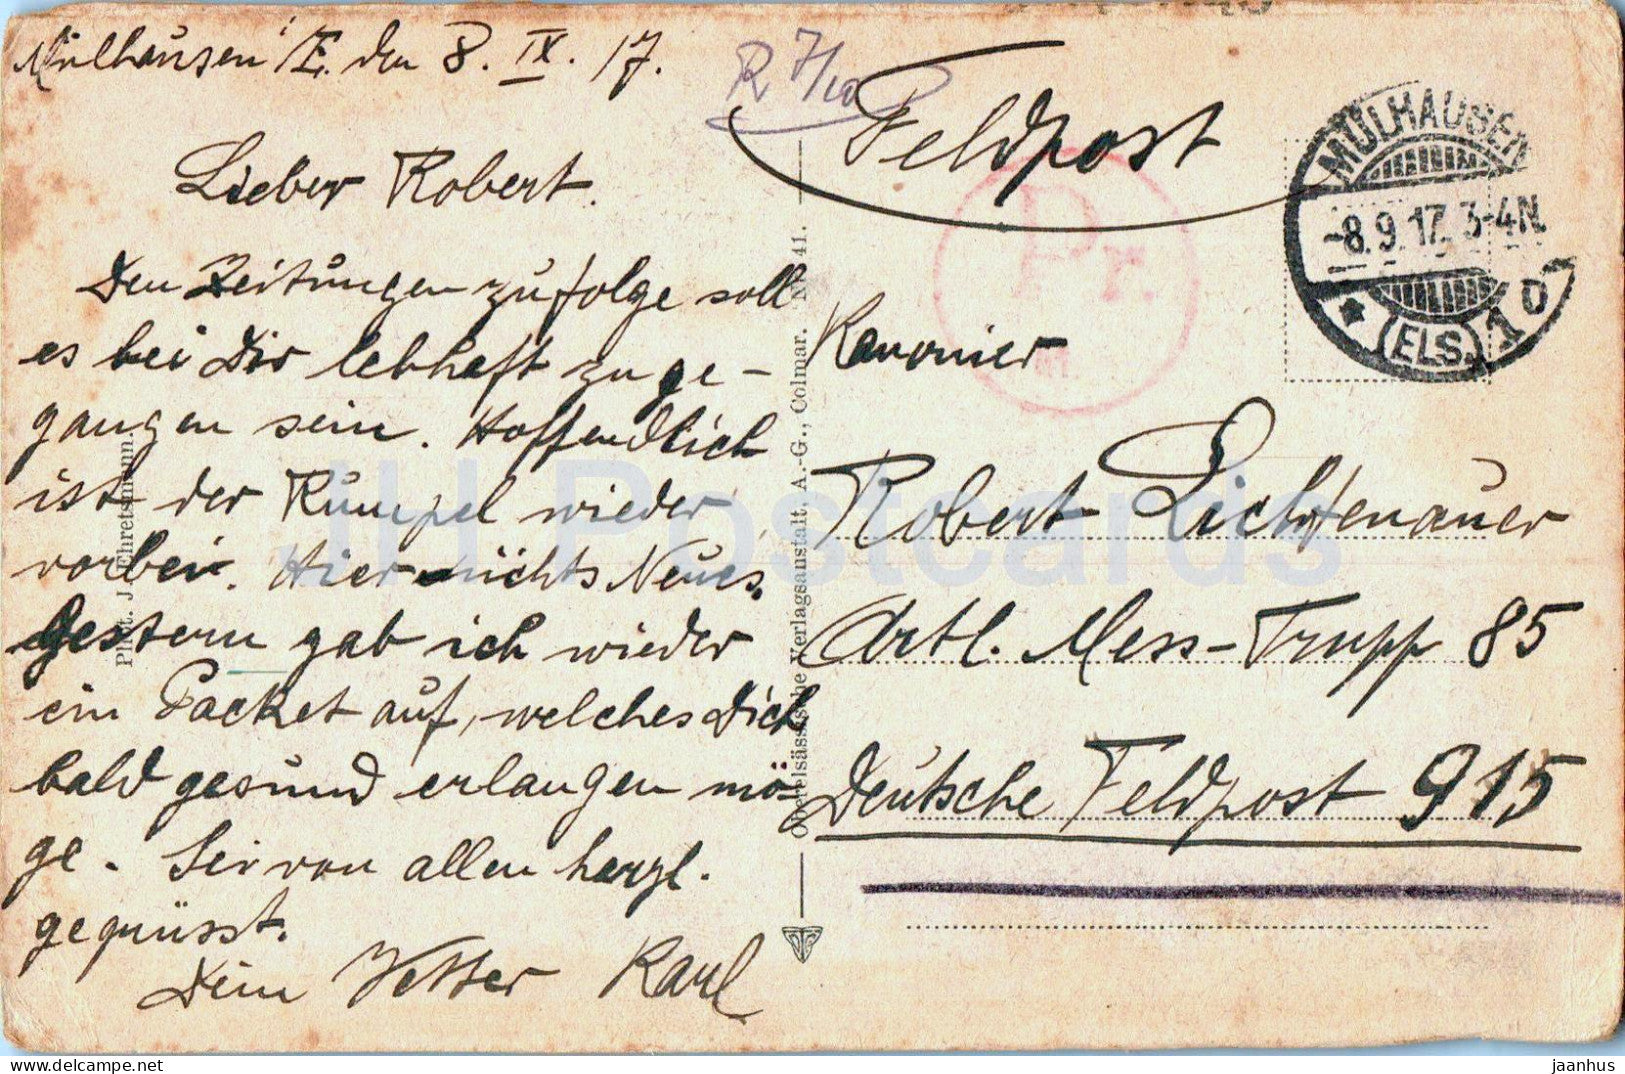 Mülhausen i/E. den 8. IX. 17.
Lieber Robert.
Den Zeitungen zufolge soll
es bei Dir lebhaft zuge-
gangen sein. Hoffendlich
ist der Rumpel wieder
vorbei. Hier nichts Neues.
Gestern gab ich wieder
ein Packet auf, welches Dich
bald gesund erlangen mö-
ge. Sei von allen herzl.
gegrüsst.
Dein Vetter Karl
Phot. J. Ehretsmann.
Oberelsässische Verlagsanstalt. A.-G., Colmar. Nr. 41.
R 7/10
Feldpost
MÜLHAUSEN
-8.9.17. 3-4N.
* (ELS.) 1 o
Pr.
Kanonier
Robert Lichtenauer
Artl. Mess-Trupp 85
Deutsche Feldpost 915
JH Postcards
jaanhus